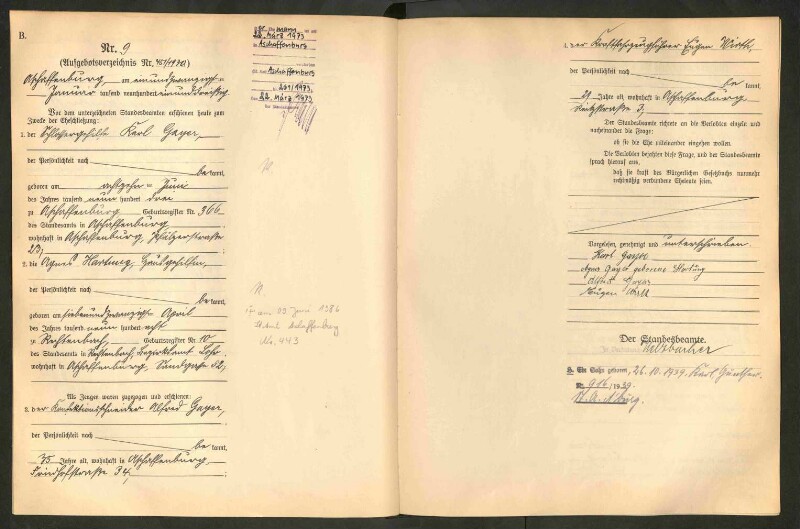 B.
Nr. 9
(Aufgebotsverzeichnis Nr. /1930)
Aschaffenburg, am einundzwanzigsten
Januar tausend neunhundert einunddreißig
Vor dem unterzeichneten Standesbeamten erschienen heute zum
Zwecke der Eheschließung:
1. der Karl Gayer,
der Persönlichkeit nach
be kannt,
geboren am achtzehnten Juni
des Jahres tausend neun hundert drei
zu Aschaffenburg Geburtsregister Nr. 366
des Standesamts in Aschaffenburg
wohnhaft in Aschaffenburg,
23;
2. die Agnes Hartung,
der Persönlichkeit nach
be kannt,
geboren am siebenundzwanzigsten April
des Jahres tausend neun hundert acht
zu Rechtenbach, Geburtsregister Nr. 10
des Standesamts in Rechtenbach, Bezirksamt Lohr
wohnhaft in Aschaffenburg, Sandgasse 52;
Als Zeugen waren zugezogen und erschienen:
3. der Konfektionsschneider Alfred Gayer,
der Persönlichkeit nach
be kannt,
35 Jahre alt, wohnhaft in Aschaffenburg,
Friedhofstraße 34;
22. März 1973
in Aschaffenburg
Aschaffenburg
201/1973
22. März 1973
am 09 Juni 1986
St.Amt Aschaffenburg
No. 443
4. der Kraftfahrzeugführer Eugen Wirth,
der Persönlichkeit nach
be kannt,
29 Jahre alt, wohnhaft in Aschaffenburg
Der Standesbeamte richtete an die Verlobten einzeln und
nacheinander die Frage:
ob sie die Ehe miteinander eingehen wollen.
Die Verlobten bejahten diese Frage, und der Standesbeamte
sprach hierauf aus,
daß sie kraft des Bürgerlichen Gesetzbuchs nunmehr
rechtmäßig verbundene Eheleute seien.
Vorgelesen, genehmigt und unterschrieben
Karl Gayer
Agnes Gayer geborene Hartung
Alfred Gayer
Eugen Wirth
Der Standesbeamte.
Ein Sohn geboren, 26.10.1939. Karl Günther.
Nr. 916/1939.